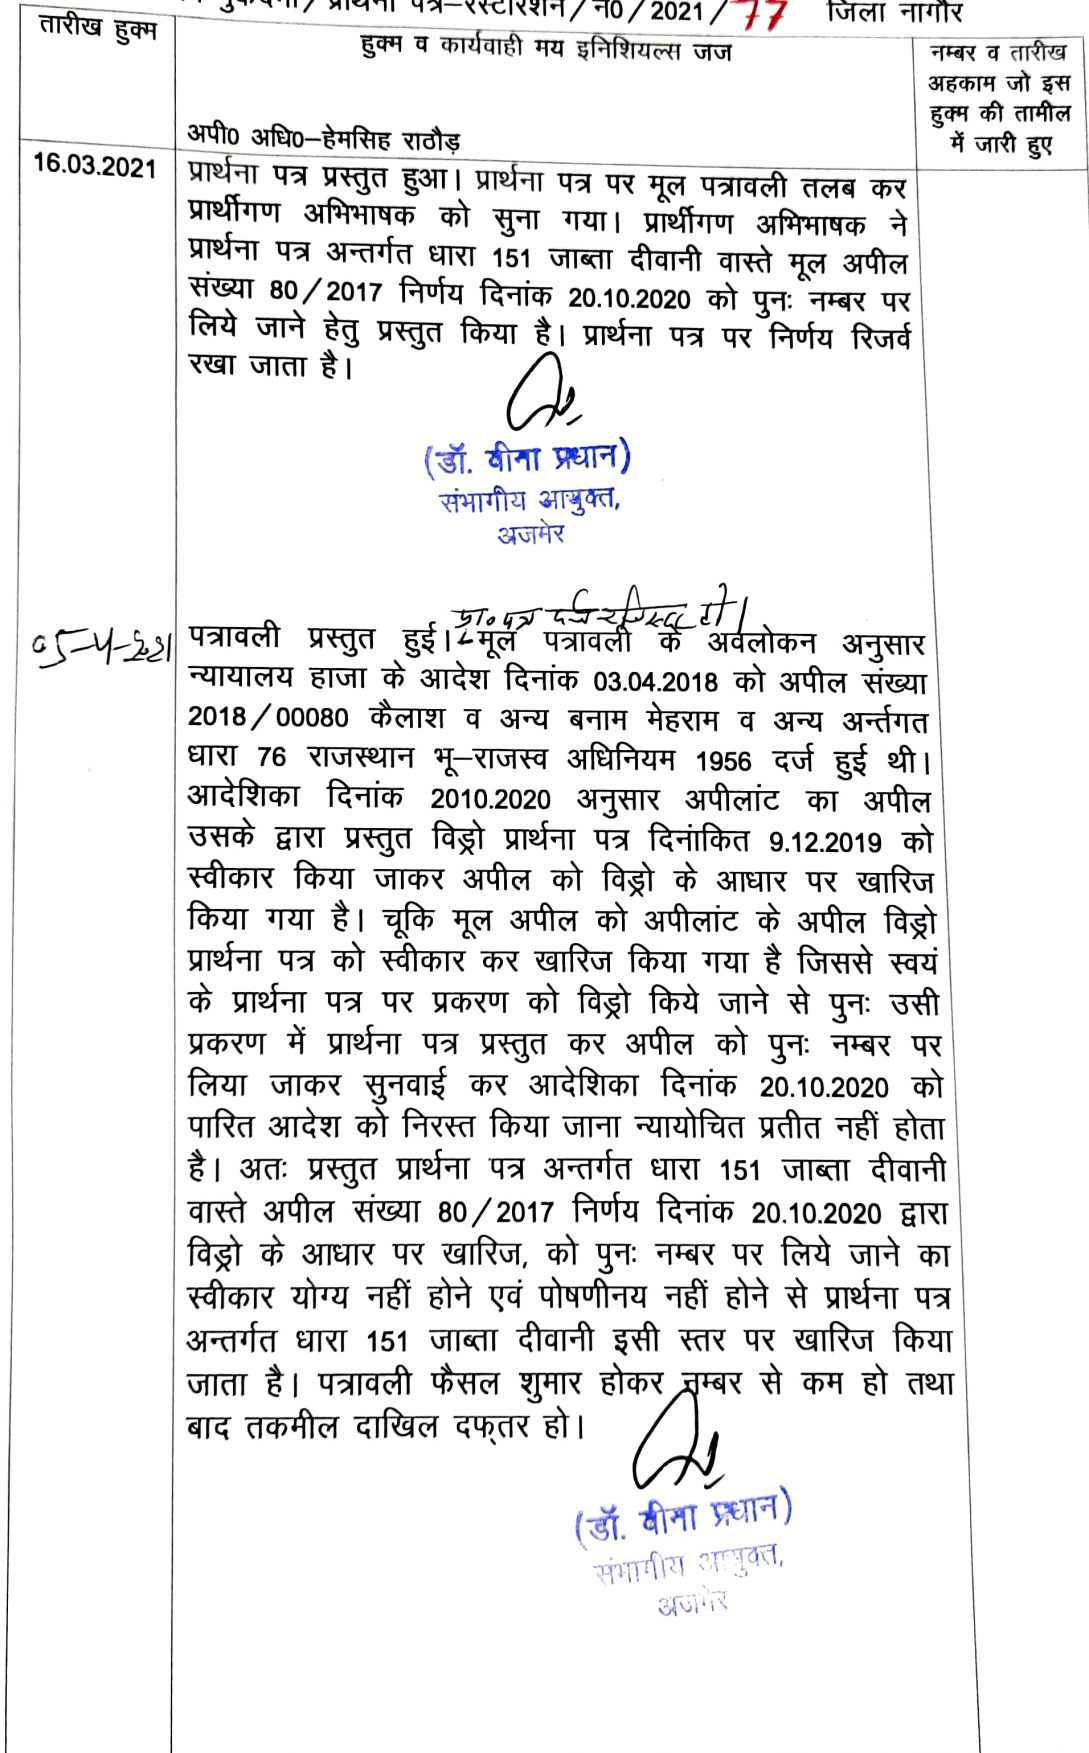 मुकदमा/प्रार्थना पत्र–रेस्टोरेशन/न0/2021/77 जिला नागौर
तारीख हुक्म
हुक्म व कार्यवाही मय इनिशियल्स जज
नम्बर व तारीख
अहकाम जो इस
हुक्म की तामील
में जारी हुए
अपी0 अधि0–हेमसिह राठौड़
16.03.2021
प्रार्थना पत्र प्रस्तुत हुआ। प्रार्थना पत्र पर मूल पत्रावली तलब कर
प्रार्थीगण अभिभाषक को सुना गया। प्रार्थीगण अभिभाषक ने
प्रार्थना पत्र अन्तर्गत धारा 151 जाब्ता दीवानी वास्ते मूल अपील
संख्या 80/2017 निर्णय दिनांक 20.10.2020 को पुनः नम्बर पर
लिये जाने हेतु प्रस्तुत किया है। प्रार्थना पत्र पर निर्णय रिजर्व
रखा जाता है।
(डॉ. वीना प्रधान)
संभागीय आयुक्त,
अजमेर
प्रा० पत्र दर्ज रजिस्टर हो।
05-4-2021
पत्रावली प्रस्तुत हुई। मूल पत्रावली के अवलोकन अनुसार
न्यायालय हाजा के आदेश दिनांक 03.04.2018 को अपील संख्या
2018/00080 कैलाश व अन्य बनाम मेहराम व अन्य अर्न्तगत
धारा 76 राजस्थान भू–राजस्व अधिनियम 1956 दर्ज हुई थी।
आदेशिका दिनांक 2010.2020 अनुसार अपीलांट का अपील
उसके द्वारा प्रस्तुत विड्रो प्रार्थना पत्र दिनांकित 9.12.2019 को
स्वीकार किया जाकर अपील को विड्रो के आधार पर खारिज
किया गया है। चूकि मूल अपील को अपीलांट के अपील विड्रो
प्रार्थना पत्र को स्वीकार कर खारिज किया गया है जिससे स्वयं
के प्रार्थना पत्र पर प्रकरण को विड्रो किये जाने से पुनः उसी
प्रकरण में प्रार्थना पत्र प्रस्तुत कर अपील को पुनः नम्बर पर
लिया जाकर सुनवाई कर आदेशिका दिनांक 20.10.2020 को
पारित आदेश को निरस्त किया जाना न्यायोचित प्रतीत नहीं होता
है। अतः प्रस्तुत प्रार्थना पत्र अन्तर्गत धारा 151 जाब्ता दीवानी
वास्ते अपील संख्या 80/2017 निर्णय दिनांक 20.10.2020 द्वारा
विड्रो के आधार पर खारिज, को पुनः नम्बर पर लिये जाने का
स्वीकार योग्य नहीं होने एवं पोषणीनय नहीं होने से प्रार्थना पत्र
अन्तर्गत धारा 151 जाब्ता दीवानी इसी स्तर पर खारिज किया
जाता है। पत्रावली फैसल शुमार होकर नम्बर से कम हो तथा
बाद तकमील दाखिल दफ्तर हो।
(डॉ. वीना प्रधान)
संभागीय आयुक्त,
अजमेर